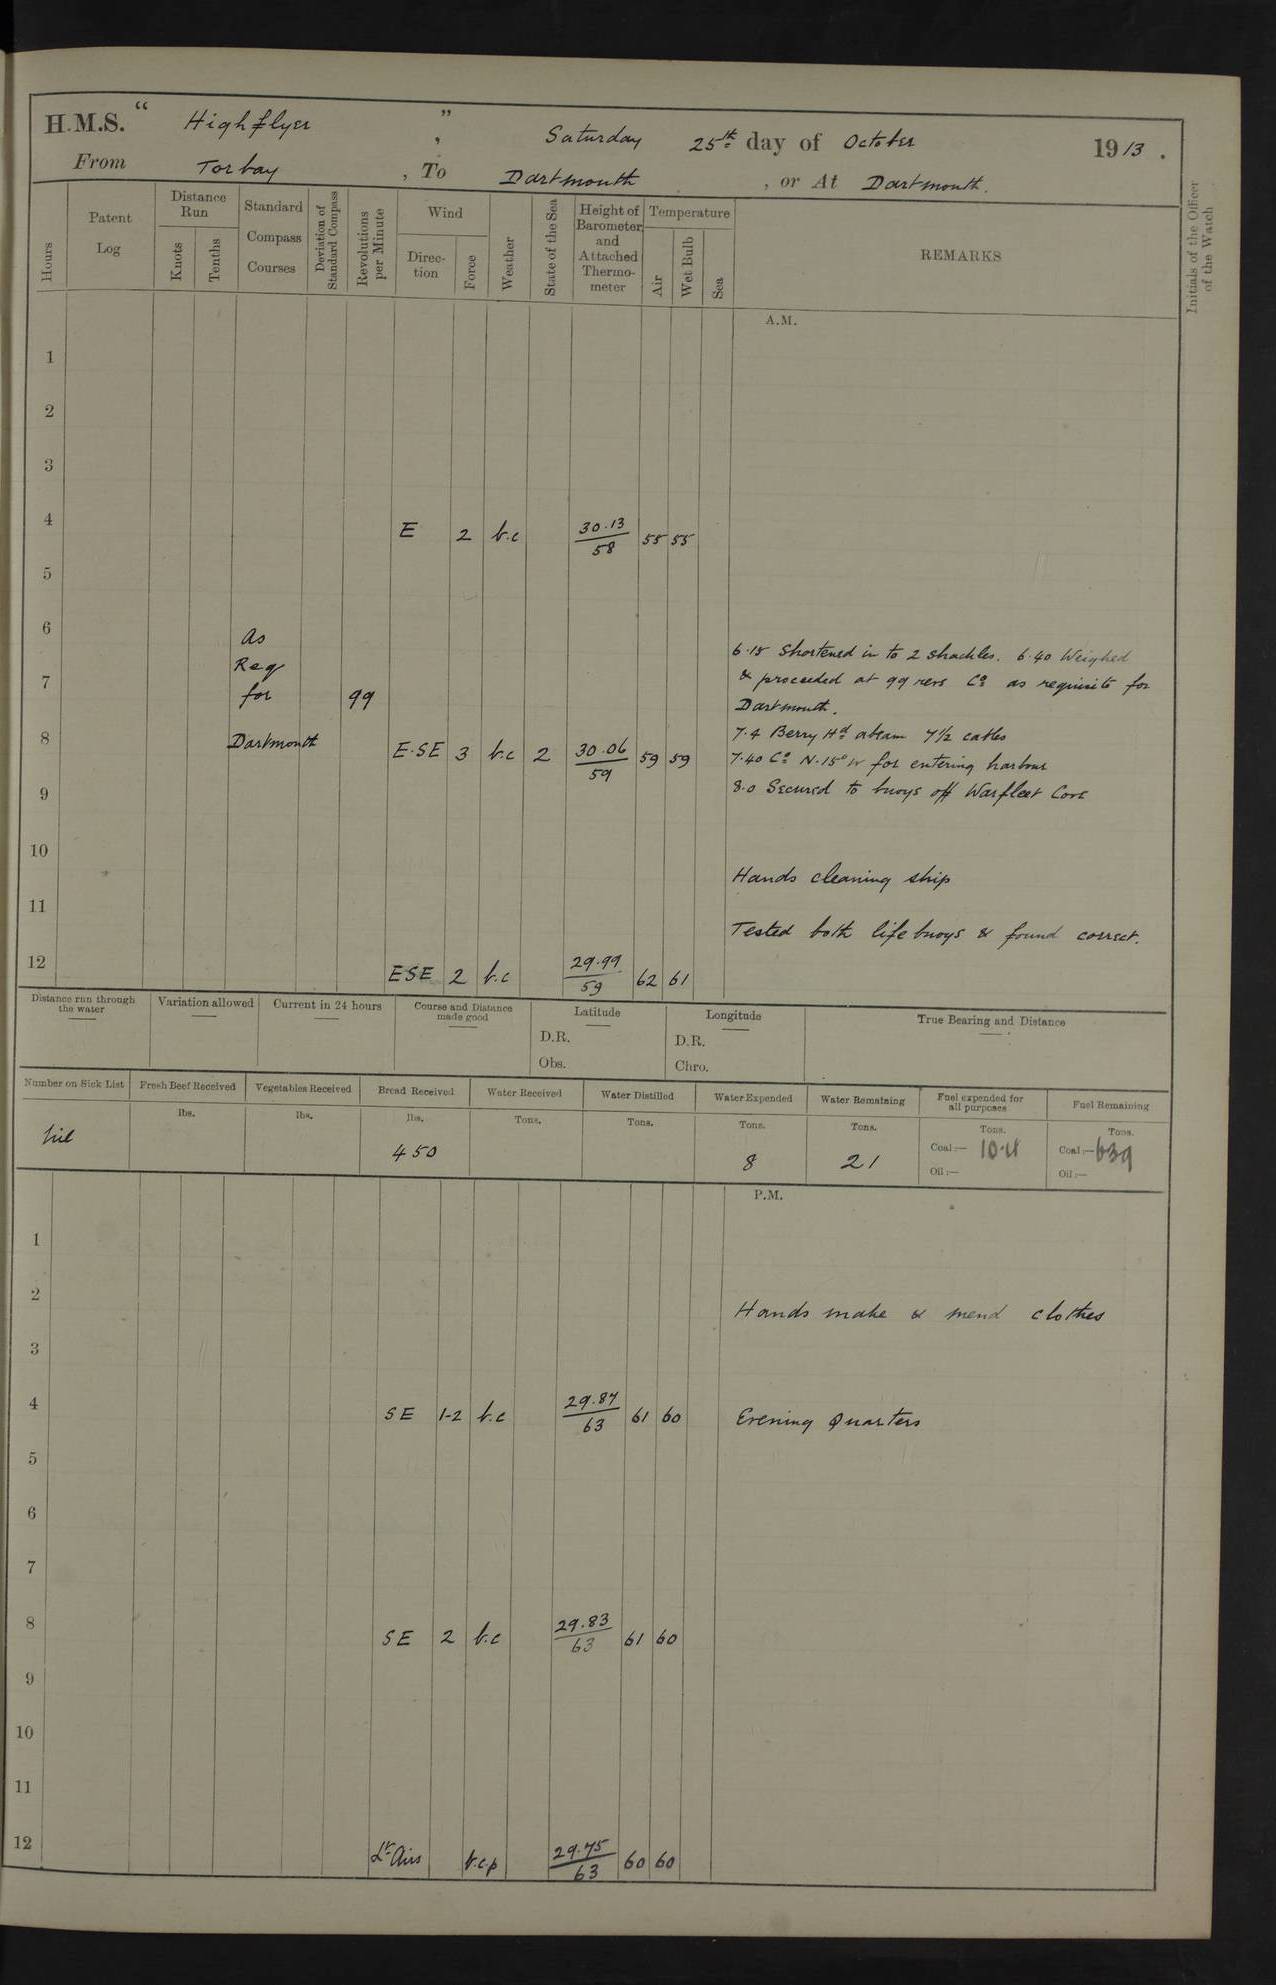 H.M.S. “ Highflyer ” , Saturday 25th day of October 1913 .
From Torbay , To Dartmouth , or At Dartmouth.
Hours
Patent Log
Distance Run
Knots
Tenths
Standard Compass Courses
Deviation of Standard Compass
Revolutions per Minute
Wind
Direc- tion
Force
Weather
State of the Sea
Height of Barometer and Attached Thermo- meter
Temperature
Air
Wet Bulb
Sea
REMARKS
Initials of the Officer of the Watch
A.M.
1
2
3
4 E 2 b.c 30.13 / 58 55 55
5
6 As
Req
6.15 Shortened in to 2 shackles. 6.40 Weighed
7 for 99
& proceeded at 99 revs Co as requisite for
Dartmouth.
7.4 Berry Hd abeam 7½ cables
8 Dartmouth E.SE 3 b.c 2 30.06 / 59 59 59
7.40 Co N.15°W for entering harbour
9
8.0 Secured to buoys off Warfleet Cove
10
Hands cleaning ship
11
Tested both lifebuoys & found correct.
12 ESE 2 b.c 29.99 / 59 62 61
Distance run through the water
Variation allowed
Current in 24 hours
Course and Distance made good
Latitude
D.R.
Obs.
Longitude
D.R.
Chro.
True Bearing and Distance
Number on Sick List
Nil
Fresh Beef Received
lbs.
Vegetables Received
lbs.
Bread Received
lbs.
450
Water Received
Tons.
Water Distilled
Tons.
Water Expended
Tons.
8
Water Remaining
Tons.
21
Fuel expended for all purposes
Tons.
Coal:—
Oil:—
Fuel Remaining
Tons.
Coal:— 639
Oil:—
P.M.
1
2
Hands make & mend clothes
3
4 SE 1-2 b.c 29.87 / 63 61 60 Evening Quarters
5
6
7
8 SE 2 b.c 29.83 / 63 61 60
9
10
11
12 Lt Airs b.c.p 29.75 / 63 60 60